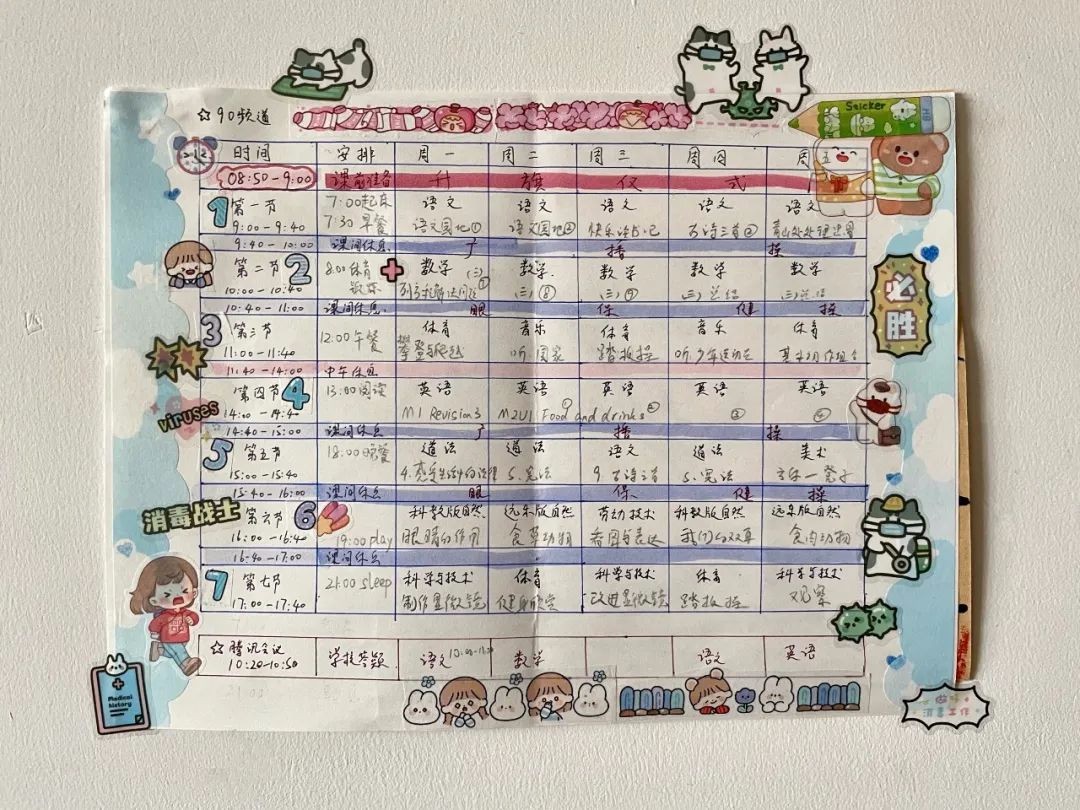 ☆90频道
Sticker
时间 安排 周一 周二 周三 周四 周五
08:50-9:00 课前准备 升 旗 仪 式
1 第一节 7:00起床 语文 语文 语文 语文 语文
9:00-9:40 7:30早餐 语文园地① 语文园地② 快乐读书吧 古诗三首②
9:40-10:00 课间休息 广 播 操
第二节 2 8:00体育 数学 数学 数学 数学 数学
10:00-10:40 锻炼 (三)⑧ (三)⑨ (三)总结 (三)总结
10:40-11:00 课间休息 眼 保 健 操
3 第三节 12:00午餐 体育 音乐 体育 音乐 体育
11:00-11:40 攀登与爬越 听:国家 踏板操
11:40-14:00 中午休息
第四节 4 13:00阅读 英语 英语 英语 英语 英语
14:00-14:40 M1 Revision3 M2U1 Food① and drinks② ③ ④
14:40-15:00 课间休息 广 播 操
5 第五节 18:00晚餐 道法 道法 语文 道法 美术
15:00-15:40 5.宪法 9.古诗三首 5.宪法
15:40-16:00 课间休息 眼 保 健 操
第六节 6 科教版自然 远东版自然 劳动技术 科教版自然 远东版自然
16:00-16:40 19:00play 眼睛的作用 食草动物 看图与表达 食肉动物
16:40-17:00 课间休息
7 第七节 21:00 sleep 科学与技术 体育 科学与技术 体育 科学与技术
17:00-17:40 制作显微镜 健身欣赏 改进显微镜 踏板操 观察
☆腾讯会议 学校答疑 语文10:00-11:20 数学 语文 英语
10:20-10:50
必胜
viruses
消毒战士
Medical history
做好
消毒工作